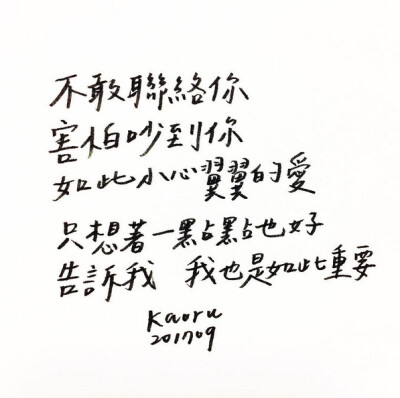 不敢聯絡你
害怕吵到你
如此小心翼翼的愛
只想著一點點也好
告訴我 我也是如此重要
Kaoru
201709